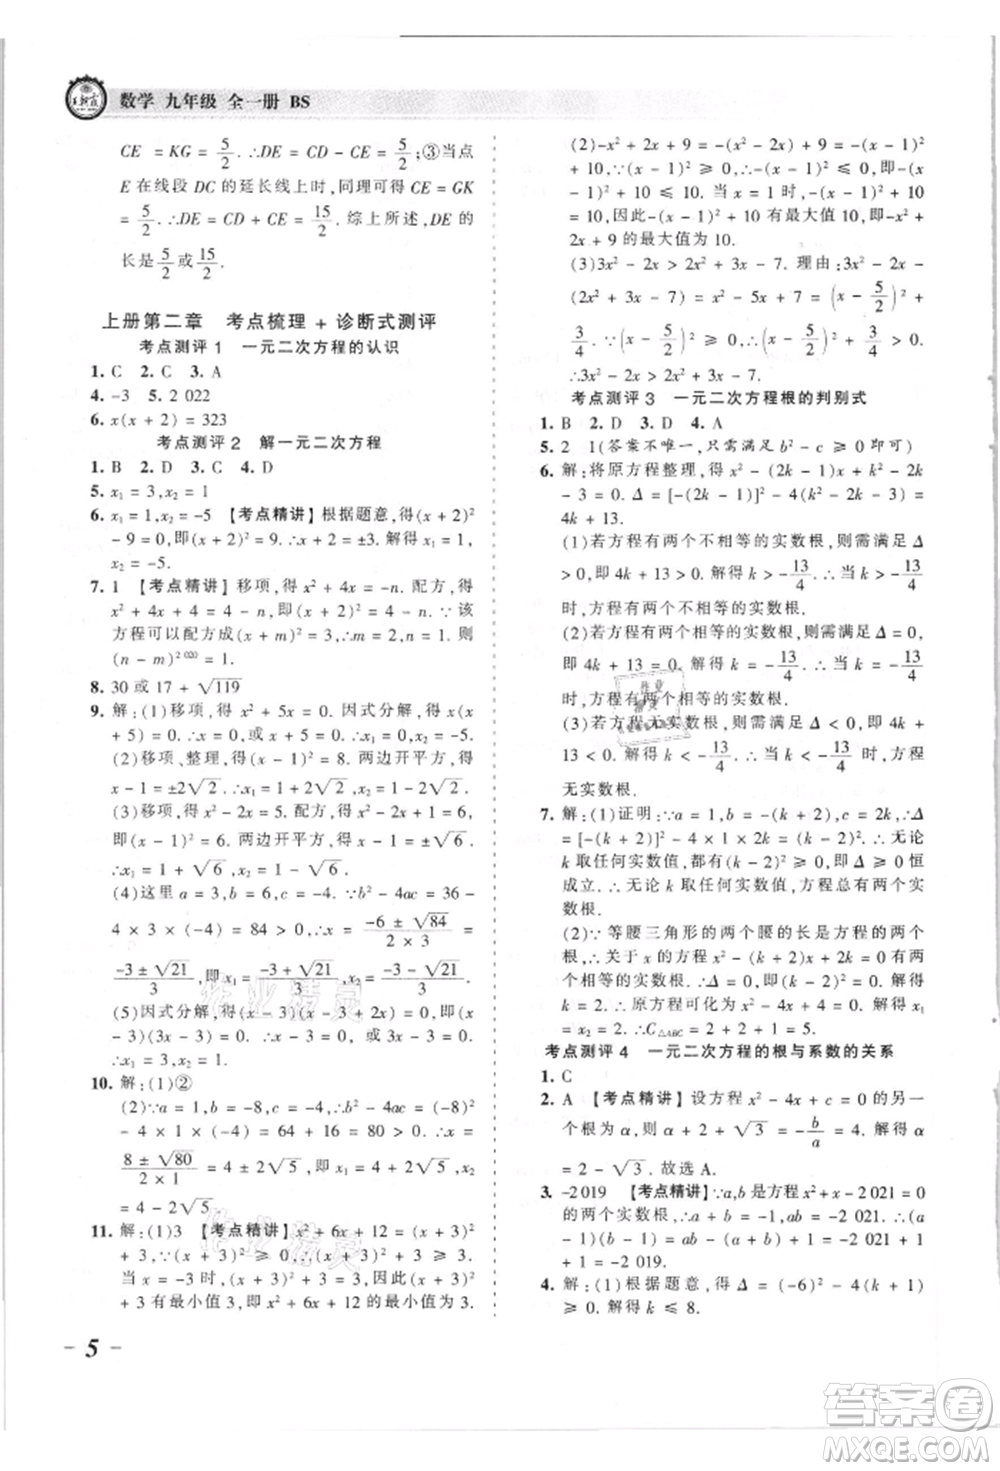 王朝霞
数学 九年级 全一册 BS
CE = KG = 5/2. ∴DE = CD − CE = 5/2;③当点
E 在线段 DC 的延长线上时,同理可得 CE = GK
= 5/2. ∴DE = CD + CE = 15/2. 综上所述,DE 的
长是 5/2 或 15/2.
上册第二章 考点梳理 + 诊断式测评
考点测评 1 一元二次方程的认识
1. C 2. C 3. A
4. −3 5. 2 022
6. x(x + 2) = 323
考点测评 2 解一元二次方程
1. B 2. D 3. C 4. D
5. x₁ = 3,x₂ = 1
6. x₁ = 1,x₂ = −5 【考点精讲】根据题意,得(x + 2)²
− 9 = 0,即(x + 2)² = 9. ∴x + 2 = ±3. 解得 x₁ = 1,
x₂ = −5.
7. 1 【考点精讲】移项,得 x² + 4x = −n. 配方,得
x² + 4x + 4 = 4 − n,即(x + 2)² = 4 − n. ∵该
方程可以配方成(x + m)² = 3,∴m = 2,n = 1. 则
(n − m)²⁰²⁰ = 1.
8. 30 或 17 + √119
9. 解:(1)移项,得 x² + 5x = 0. 因式分解,得 x(x
+ 5) = 0. ∴x = 0 或 x + 5 = 0. ∴x₁ = 0,x₂ = −5.
(2)移项、整理,得(x − 1)² = 8. 两边开平方,得 x
− 1 = ±2√2. ∴x₁ = 1 + 2√2,x₂ = 1 − 2√2.
(3)移项,得 x² − 2x = 5. 配方,得 x² − 2x + 1 = 6,
即(x − 1)² = 6. 两边开平方,得 x − 1 = ±√6.
∴x₁ = 1 + √6,x₂ = 1 − √6.
(4)这里 a = 3,b = 6,c = −4. ∵b² − 4ac = 36 −
4 × 3 × (−4) = 84 > 0,∴x = (−6 ± √84)/(2 × 3) =
(−3 ± √21)/3,即 x₁ = (−3 + √21)/3,x₂ = (−3 − √21)/3.
(5)因式分解,得(x − 3)(x − 3 + 2x) = 0,即
(x − 3)(3x − 3) = 0. ∴x − 3 = 0 或 3x − 3 = 0.
∴x₁ = 3,x₂ = 1.
10. 解:(1)②
(2)∵a = 1,b = −8,c = −4,b² − 4ac = (−8)²
− 4 × 1 × (−4) = 64 + 16 = 80 > 0,∴x =
(8 ± √80)/(2 × 1) = 4 ± 2√5,即 x₁ = 4 + 2√5,x₂
= 4 − 2√5.
11. 解:(1)3 【考点精讲】x² + 6x + 12 = (x + 3)²
+ 3,∵(x + 3)² ≥ 0,∴(x + 3)² + 3 ≥ 3. ∴当 x
= −3 时,x² + 6x + 12 有最小值 3,即 x² + 6x + 12
= 3 有最小值 3,∴x² + 6x + 12 的最小值为 3.
(2)−x² + 2x + 9 = −(x² − 2x) + 9 = −(x − 1)²
+ 10,∵(x − 1)² ≥ 0,∴−(x − 1)² ≤ 0. 即−(x −
1)² + 10 ≤ 10. 当 x = 1 时,−(x − 1)² + 10
= 10,因此−(x − 1)² + 10 有最大值 10,即−x² +
2x + 9 的最大值为 10.
(3)2x² − 3x > x² + 2x − 7. 理由:∵2x² − 3x −
(x² + 2x − 7) = x² − 5x + 7 = (x − 5/2)² +
3/4,(x − 5/2)² ≥ 0,∴(x − 5/2)² + 3/4 > 0.
∴2x² − 3x > x² + 2x − 7.
考点测评 3 一元二次方程根的判别式
1. B 2. D 3. D 4. A
5. 2 1(答案不唯一,只需满足 b² − c ≥ 0 即可)
6. 解:将原方程整理,得 x² − (2k − 1)x + k² − 2k −
3 = 0. ∴Δ = [−(2k − 1)]² − 4(k² − 2k − 3) = 4k
+ 13.
(1)若方程有两个不相等的实数根,则需满足 Δ
> 0,即 4k + 13 > 0. 解得 k > −13/4. ∴当 k > −13/4
时,方程有两个不相等的实数根.
(2)若方程有两个相等的实数根,则需满足 Δ = 0,
即 4k + 13 = 0. 解得 k = −13/4. ∴当 k = −13/4
时,方程有两个相等的实数根.
(3)若方程无实数根,则需满足 Δ < 0,即 4k +
13 < 0. 解得 k < −13/4. ∴当 k < −13/4 时,方程
无实数根.
7. 解:(1)证明:∵a = 1,b = −(k + 2),c = 2k,∴Δ
= [−(k + 2)]² − 4 × 1 × 2k = (k − 2)². ∴无论
k 取任何实数值,都有(k − 2)² ≥ 0,即 Δ ≥ 0 恒
成立. ∴无论 k 取任何实数值,方程总有两个实
数根.
(2)∵等腰三角形的两个腰的长是方程的两个根,
∴关于 x 的方程有两个相等的实数根. ∴Δ =
(k − 2)² = 0. 解得 k = 2. ∴原方程可化为 x² − 4x + 4 = 0. 解得 x₁ =
x₂ = 2. ∴C△ABC = 2 + 2 + 1 = 5.
考点测评 4 一元二次方程的根与系数的关系
1. C
2. A 【考点精讲】设方程 x² − 4x + c = 0 的另一
个根为 α,则 α + 2 + √3 = −b/a = 4. 解得 α
= 2 − √3. 故选 A.
3. −2 019 【考点精讲】∵a,b 是方程 x² + x − 2 021 = 0
的两个实数根,∴a + b = −1,ab = −2 021. ∴(a
− 1)(b − 1) = ab − (a + b) + 1 = −2 021 + 1
+ 1 = −2 019.
4. 解:(1)根据题意,得 Δ = (−6)² − 4(4k + 1)
≥ 0. 解得 k ≤ 8.
作业精灵
− 5 −
答案圈
MXQE.COM